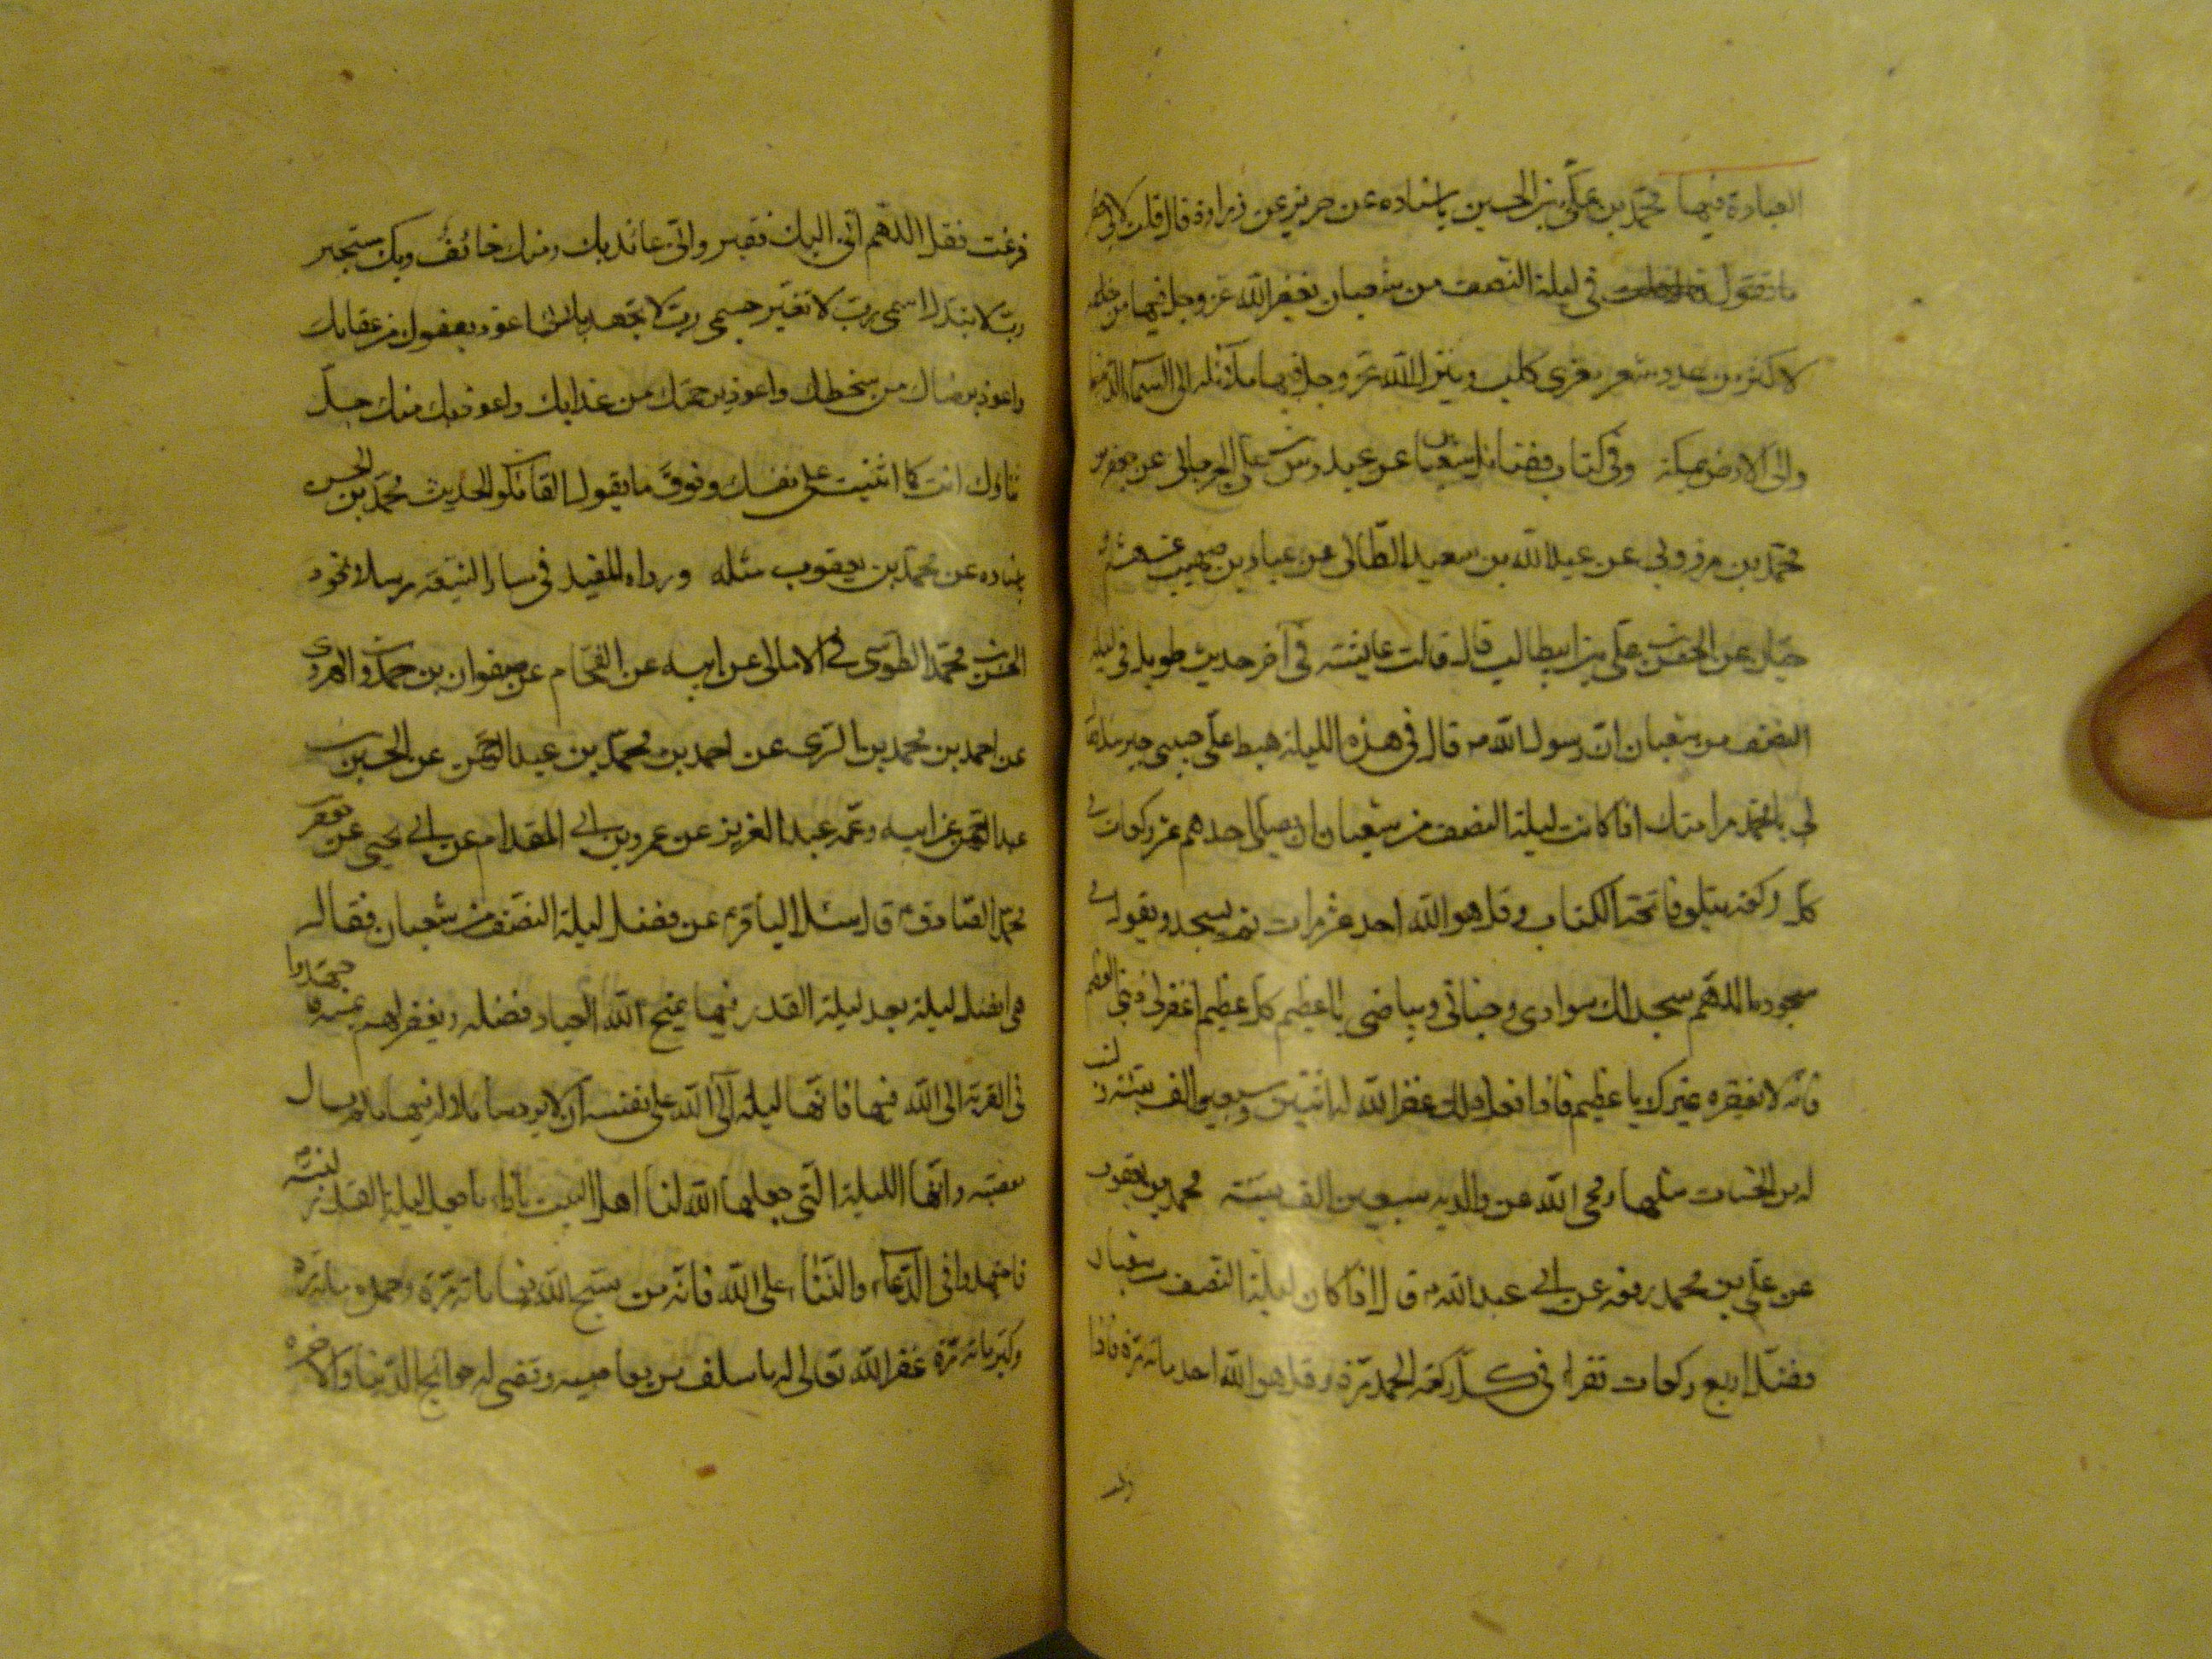 العبادة فيها محمد بن علي بن الحسين باسناده عن حريز عن زرارة قال قلت لابي جعفر
ما تقول في ليلة النصف من شعبان يغفر الله عز وجل فيها من خلقه
لاكثر من عدد شعر معزى كلب وينزل الله عز وجل فيها ملائكته الى السماء الدنيا
والى الارض بمكة وفي كتاب فضائل شعبان عن عبدوس بن علي الجرجاني عن جعفر بن
محمد بن مرزوق عن عبد الله بن سعيد الطائي عن عباد بن صهيب عن هشام
حيان عن الحسن بن علي بن ابيطالب قال قالت عايشة في آخر حديث طويل في ليلة
النصف من شعبان ان رسول الله ص قال في هذه الليلة هبط علي حبيبي جبرئيل فقال
لي يا محمد مر امتك اذا كانت ليلة النصف من شعبان ان يصلي احدهم عشر ركعات في
كل ركعة يتلو فاتحة الكتاب وقل هو الله احد عشر مرات ثم يسجد ويقول في
سجوده اللهم سجد لك سوادي وجناني وبياضي يا عظيم كل عظيم اغفر لي ذنبي العظيم
فانه لا يغفره غيرك يا عظيم فاذا فعل ذلك غفر الله له اثنين وسبعين الف سيئة وكتب
له من الحسنات مثلها ومحى الله عن والديه سبعين الف سيئة محمد بن يعقوب
عن علي بن محمد رفعه عن ابي عبد الله ع قال اذا كان ليلة النصف من شعبان
فصل اربع ركعات تقرا في كل ركعة الحمد مرة وقل هو الله احد مائة مرة فاذا
فرغت فقل اللهم اني اليك فقير واني عائذ بك ومنك خائف وبك مستجير
رب لا تبدل اسمي رب لا تغير جسمي رب لا تجهد بلائي اعوذ بعفوك من عقابك
واعوذ برضاك من سخطك واعوذ برحمتك من عذابك واعوذ بك منك جل
ثناؤك انت كما اثنيت على نفسك وفوق ما يقول القائلون الحديث محمد بن الحسن
باسناده عن محمد بن يعقوب مثله ورواه المفيد في مسار الشيعة مرسلا نحوه
الحسن بن محمد الطوسي في الامالي عن ابيه عن الفحام عن صفوان بن حمدون الهروي
عن احمد بن محمد بن السري عن احمد بن محمد بن عبد الرحمن عن الحسن بن
عبد الرحمن عن ابيه وعمه عبد العزيز عن عمرو بن ابي المقدام عن ابي يحيى عن جعفر
محمد الصادق ع قال سئل الباقر ع عن فضل ليلة النصف من شعبان فقال
هي افضل ليلة بعد ليلة القدر فيها يمنح الله العباد فضله ويغفر لهم بمنه فاجتهدوا
في القربة الى الله فيها فانها ليلة آلى الله على نفسه ان لا يرد سائلا له فيها ما لم يسال
معصية وانها الليلة التي جعلها الله لنا اهل البيت بازاء ما جعل ليلة القدر لنبينا
فاجتهدوا في الدعاء والثناء على الله فانه من سبح الله فيها مائة مرة وحمده مائة مرة
وكبر مائة مرة غفر الله تعالى له ما سلف من معاصيه وقضى له حوائج الدنيا والآخرة